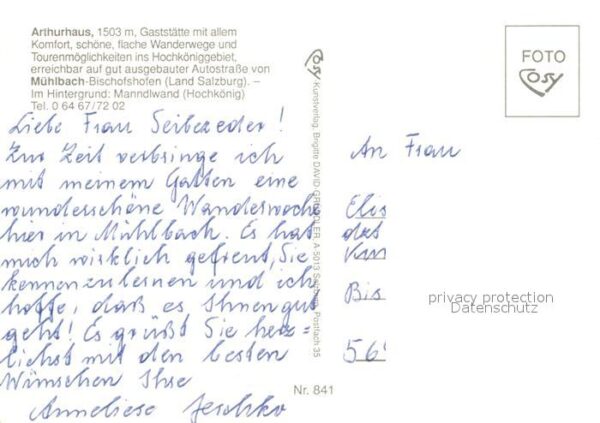 Arthurhaus, 1503 m, Gaststätte mit allem
Komfort, schöne, flache Wanderwege und
Tourenmöglichkeiten ins Hochköniggebiet,
erreichbar auf gut ausgebauter Autostraße von
Mühlbach-Bischofshofen (Land Salzburg). –
Im Hintergrund: Manndlwand (Hochkönig)
Tel. 0 64 67/72 02
Liebe Frau Seibezeder!
Zur Zeit verbringe ich
mit meinem Gatten eine
wunderschöne Wanderwoche
hier in Mühlbach. Es hat
mich wirklich gefreut, Sie
kennenzulernen und ich
hoffe, daß es Ihnen gut
geht! Es grüßt Sie herz=
lichst mit den besten
Wünschen Ihre
Anneliese Jeschko
Cosy
Kunstverlag, Brigitte DAVID-GRÜNDLER, A-5013 Salzburg, Postfach 35
Nr. 841
FOTO
cosy
An Frau
Elis
Bis
56
privacy protection
Datenschutz